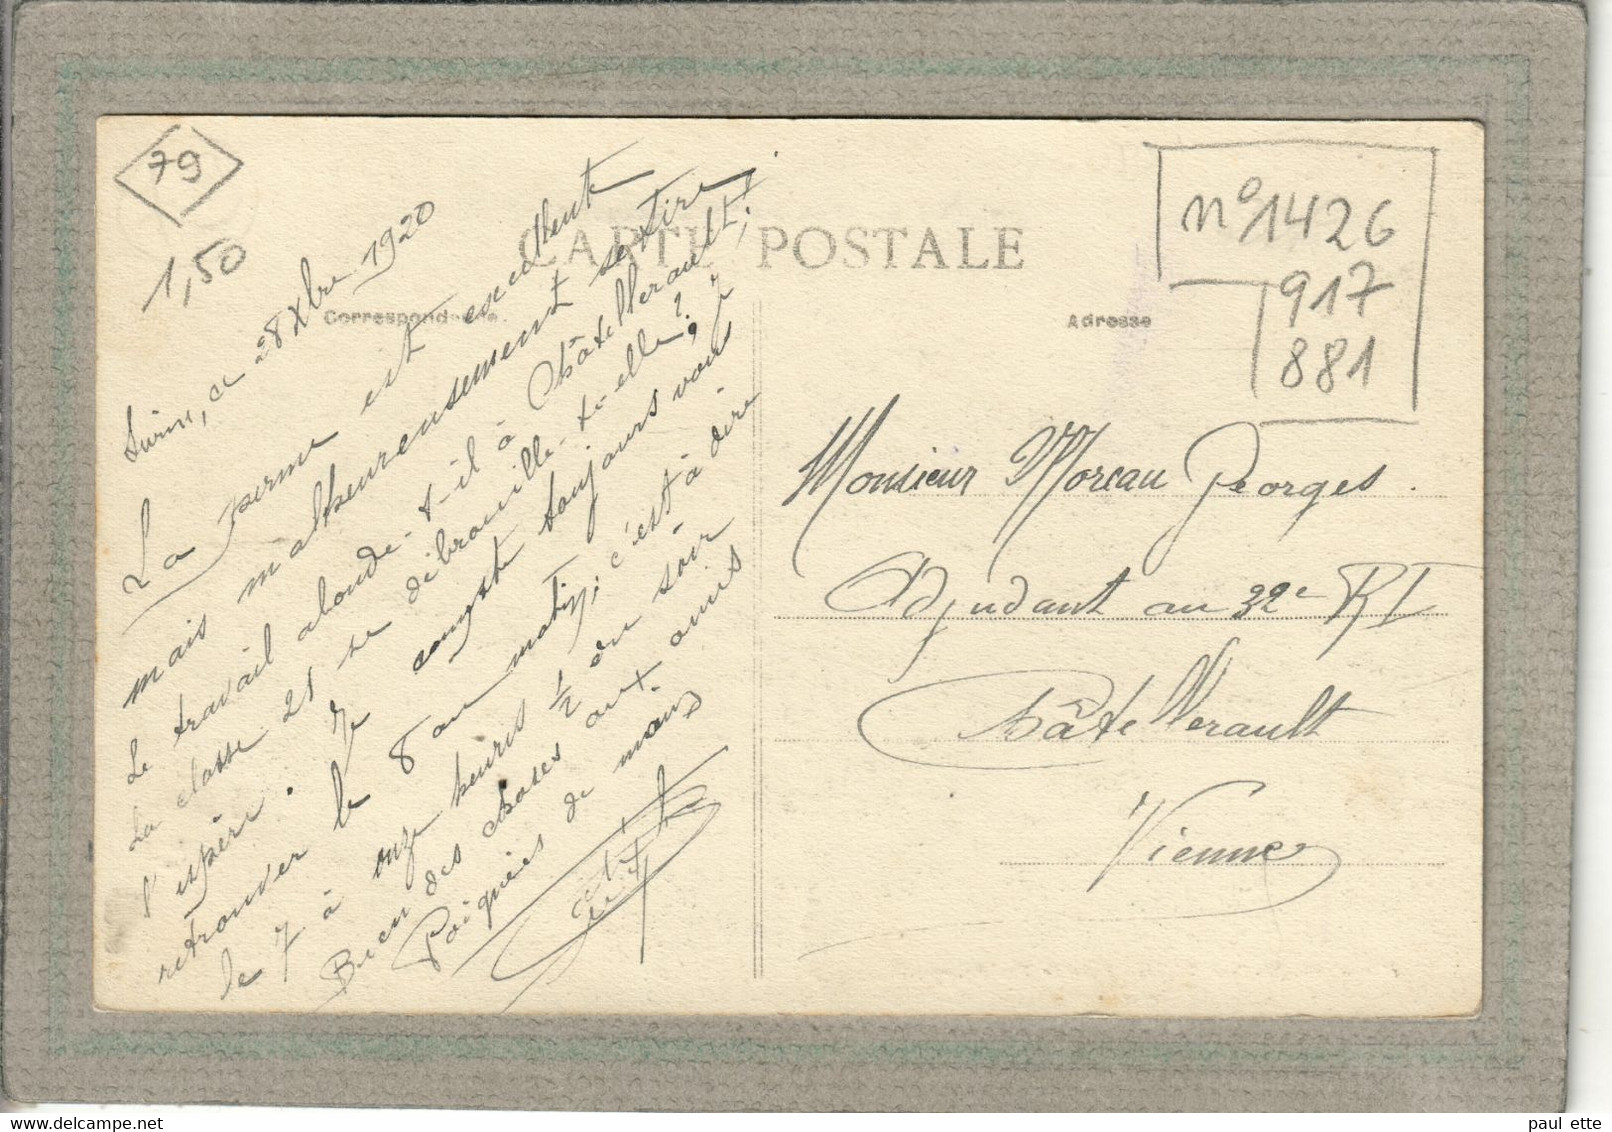 79
1,50
CARTE POSTALE
Correspondance.
Adresse
n° 1426
917
881
Surin, ce 28 Xbre 1920
La perme est excellente
mais malheureusement se tire
Le travail abonde-t-il à Châtellerault;
La classe 21 se débrouille-t-elle?
l'espère. Je compte toujours vous
retrouver le 8 au matin; c'est à dire
le 7 à onze heures 1/2 du soir
Bien des choses aux amis
Poignées de mains
Monsieur Moreau Georges.
Adjudant au 32e RI
Châtellerault
Vienne
paul ette